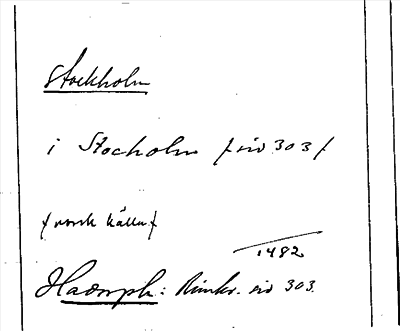 Stockholm
i Stocholm / sid 303 /
/ norsk källa /
1482
Hadorph: Rimkr. sid 303.